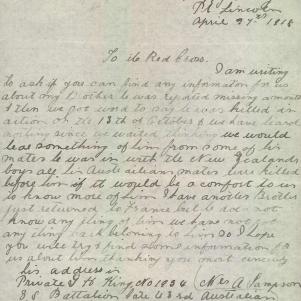 Pt Lincoln
April 27th 1918
To the Red Cross.
I am writing
to ask if you can find any information for us
about my Brother he was reported missing
& then we got word to say he was killed in
action on the 13th of October & we have heard
nothing since we waited thinking we would
hear something of him from some of his
mates he was in with the New Zealands
boys all his Australian mates were killed
before him if it would be a comfort to us
to know more of him I have another Brother
just returned to France but he did not
know any thing of him we have not got
any thing back belonging to him so I hope
you will try & find some information for
us about him thanking you most sincerly
his address is
Private J H King No 1934 Mrs A Sampson
Battalion late 43rd Australian